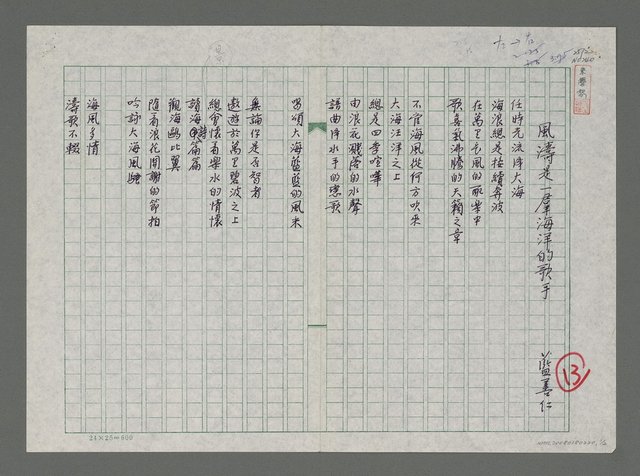 風濤是一羣海洋的歌手
藍善仁
任時光流浮大海
海浪總是接續奔波
在萬里長風的吹嚮中
歌喜氣沸騰的天籟之章
不管海風從何方吹來
大海汪洋之上
總是四季喧嘩
由浪花濺落的水聲
譜曲浮水手的戀歌
另頌大海藍藍的風采
無論你是否智者
遨遊於萬里碧波之上
總會懷着樂水的情懷
請海鷗翩翩
觀海鷗比翼
隨着浪花開謝的節拍
吟詠大海風騷
海風多情
濤歌不輟
13
24×25=600